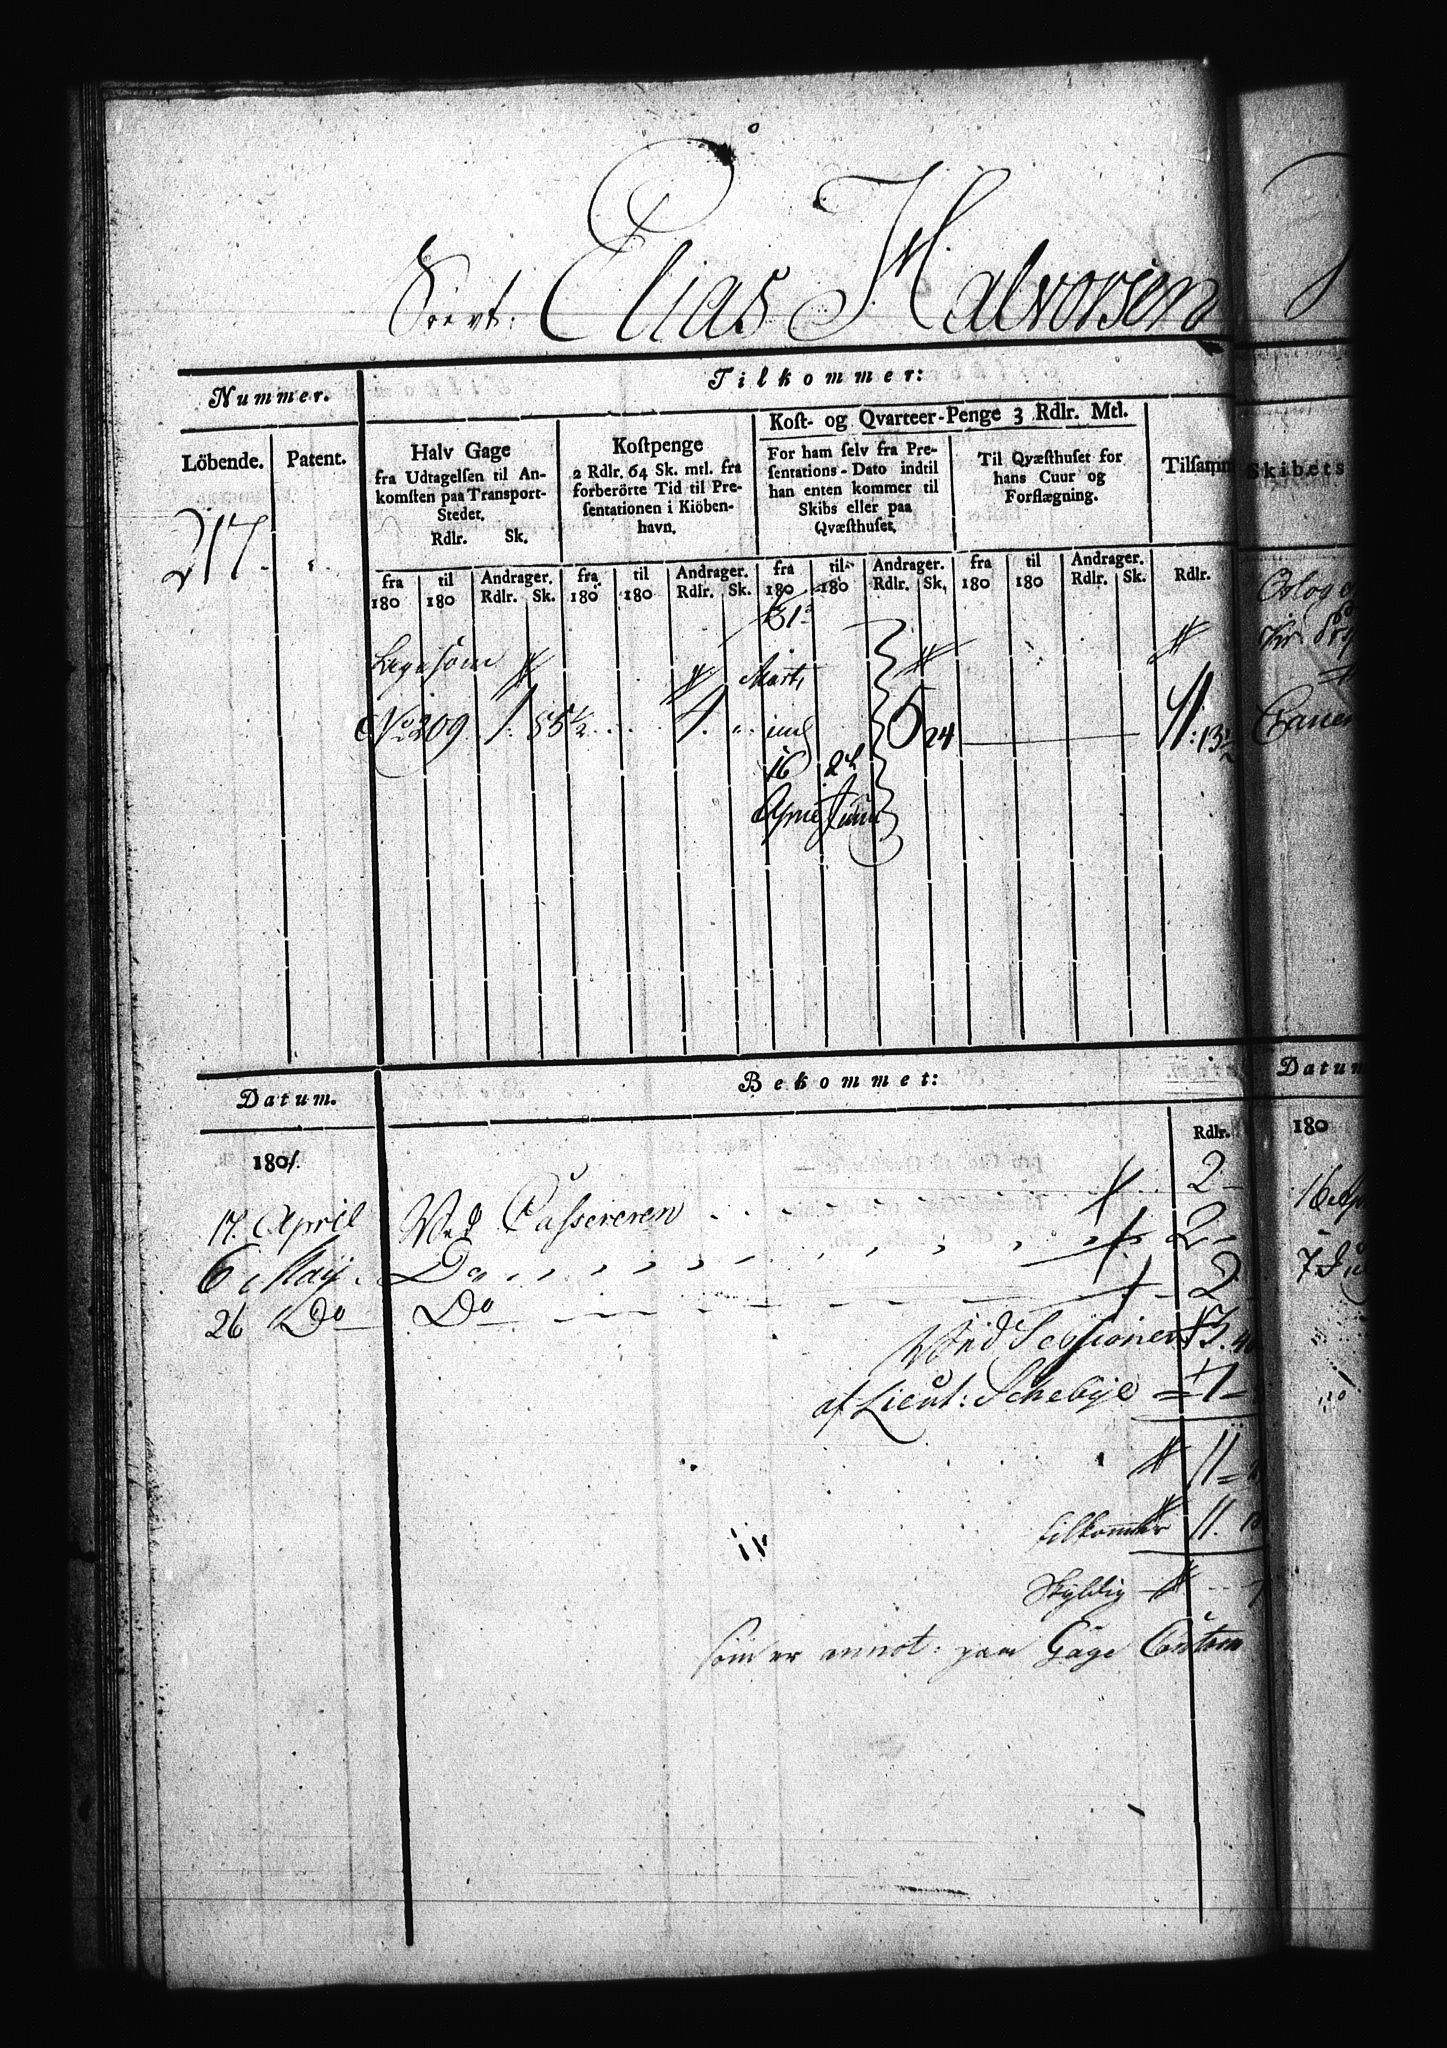 Elias Halvorsen
Nummer.
Tilkommer:
Löbende.
Patent.
Halv Gage
fra Udtagelsen til An-
komsten paa Transport-
Stedet.
Rdlr. Sk.
Kostpenge
2 Rdlr. 64 Sk. mtl. fra
forberörte Tid til Pre-
sentationen i Kiöben-
havn.
Kost- og Qvarteer-Penge 3 Rdlr. Mtl.
For ham selv fra Pre-
sentations-Dato indtil
han enten kommer til
Skibs eller paa
Qvæsthuset.
Til Qvæsthuset for
hans Cuur og
Forflægning.
Tilsamm
Skibets
217.
fra 180 til 180 Andrager. Rdlr. Sk.
fra 180 til 180 Andrager. Rdlr. Sk.
fra 180 til 180 Andrager. Rdlr. Sk.
fra 180 til 180 Andrager. Rdlr. Sk.
Rdlr.
31
Ligesom
Marts
No 209 1. 85½ 4. ind 5 24 11:13
16 2d
April Juni
Datum.
Bekommet:
Datum
1801.
Rdlr.
180
17. April Ved Cassereren 2
6 May Do 2
26 Do Do 2
Ved Sessionen 3.
af Lieut: Schebye 1
11
tilkommer 11.
Skyldig
som er annot: paa Gage Contoen
16 Ap
7 Ju